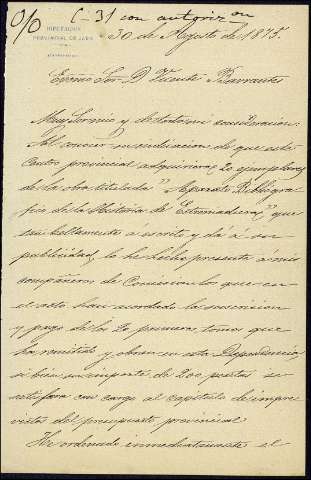 % C-31 con autorizon
DIPUTACION
PROVINCIAL DE JAEN
30 de Agosto de 1875.
Excmo Sor D. Vicente Barrantes
Muy Sor mio y de toda mi consideracion:
Al conocer su indicacion de que este
Centro provincial adquiriera 20 ejemplares
de la obra titulada "Aparato Bibliogra-
fico de la Historia de Estremadura," que
tan bellamente a escrito y dá á su
publicidad, lo he hecho presente á mis
compañeros de Comision los que en
el acto han acordado la suscricion
y pago de los 20 primeros tomos que
ha remitido y obran en esta Dependencia
si bien su importe de 200 pesetas se
satisfara con cargo al capitulo de impre-
vistos del presupuesto provincial.
He ordenado inmediatamente el